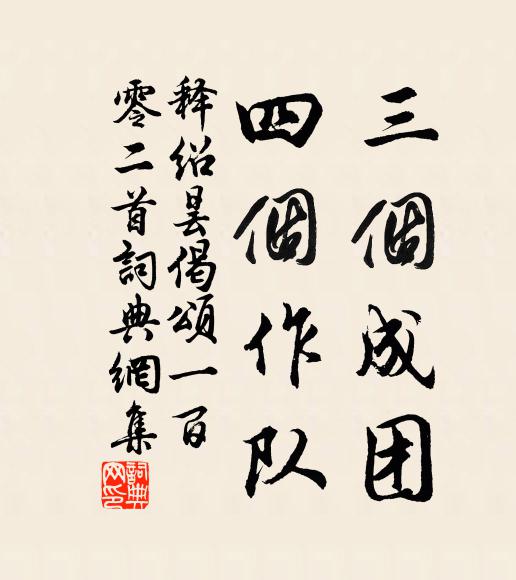 三個成团
四個作队
释绍昙偈頌一百
零二首詞典網集
詞典
网印